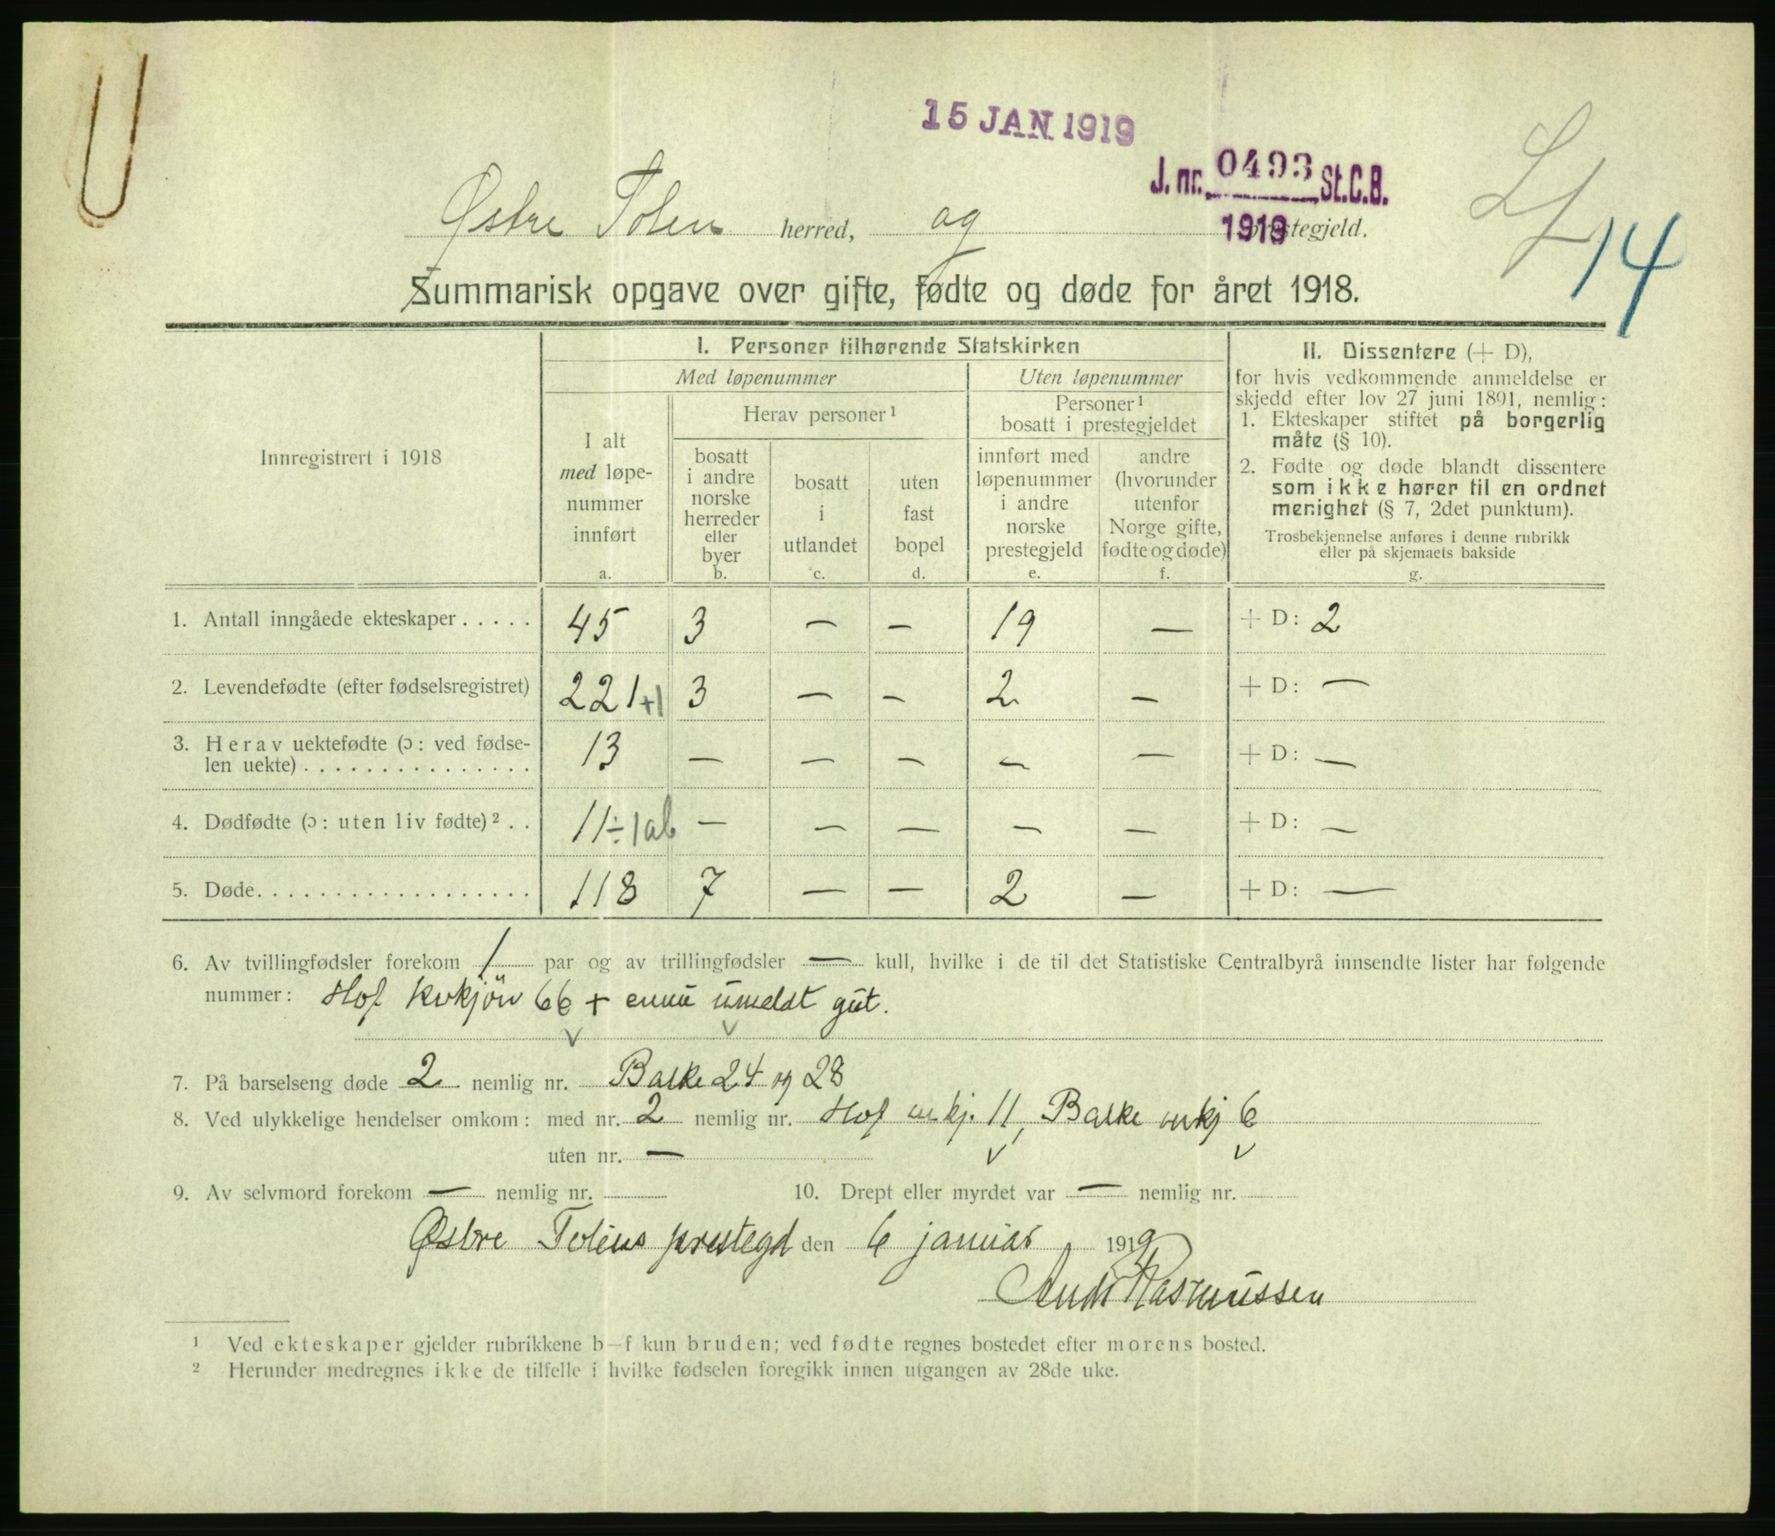 15 JAN 1919
J. nr. 0493 St.C.B.
1919
14
Østre Toten herred, og prestegjeld.
Summarisk opgave over gifte, fødte og døde for året 1918.
Innregistrert i 1918
I. Personer tilhørende Statskirken
Med løpenummer
Uten løpenummer
I alt med løpe-nummer innført
a.
Herav personer ¹
bosatt i andre norske herreder eller byer
b.
bosatt i utlandet
c.
uten fast bopel
d.
Personer ¹ bosatt i prestegjeldet
innført med løpenummer i andre norske prestegjeld
e.
andre (hvorunder utenfor Norge gifte, fødte og døde)
f.
II. Dissentere (+ D),
for hvis vedkommende anmeldelse er
skjedd efter lov 27 juni 1891, nemlig:
1. Ekteskaper stiftet på borgerlig
måte (§ 10).
2. Fødte og døde blandt dissentere
som ikke hører til en ordnet
menighet (§ 7, 2det punktum).
Trosbekjennelse anføres i denne rubrikk
eller på skjemaets bakside
g.
1. Antall inngåede ekteskaper . . . . . 45 3 — — 19 — + D: 2
2. Levendefødte (efter fødselsregistret) 221+1 3 — — 2 — + D: —
3. Herav uektefødte (ɔ: ved fødse-
len uekte) . . . . . . . . . . . . . . . 13 — — — — — + D: —
4. Dødfødte (ɔ: uten liv fødte) ² . . 11÷1ab — — — — — + D: —
5. Døde. . . . . . . . . . . . . . . . . . 118 7 — — 2 — + D: —
6. Av tvillingfødsler forekom 1 par og av trillingfødsler — kull, hvilke i de til det Statistiske Centralbyrå innsendte lister har følgende
nummer: Hof kvkjön 66 + ennu umeldt gut.
7. På barselseng døde 2 nemlig nr. Balke 24 og 28
8. Ved ulykkelige hendelser omkom: med nr. 2 nemlig nr. Hof mkj. 11, Balke mkj 6
uten nr. —
9. Av selvmord forekom — nemlig nr. 10. Drept eller myrdet var — nemlig nr.
Østre Totens prestegd den 6 januar 1919
Andr Rasmussen
¹ Ved ekteskaper gjelder rubrikkene b–f kun bruden; ved fødte regnes bostedet efter morens bosted.
² Herunder medregnes ikke de tilfelle i hvilke fødselen foregikk innen utgangen av 28de uke.